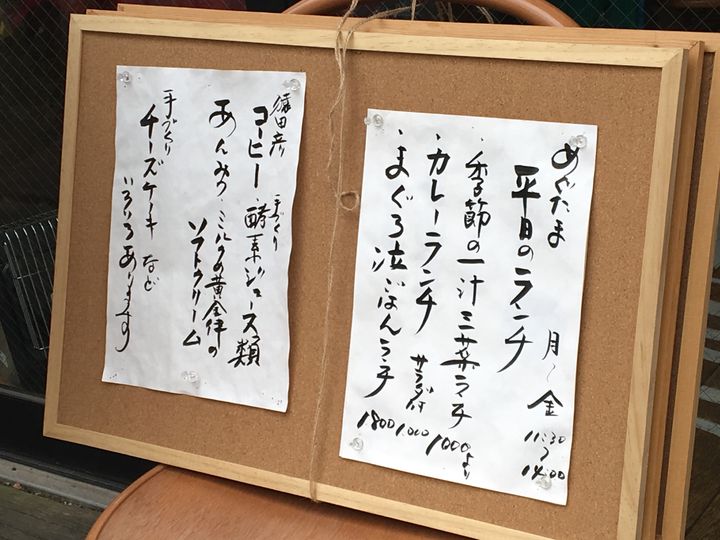 めぐたま
平日のランチ
月〜金
11:30
〜
14:00
・季節の一汁三菜ランチ 1000より
・カレーランチ サラダ付 1,000
・まぐろ泣ごはんランチ 1800
猿田彦
コーヒー・手づくり酵素ジュース類
あんみつ・ミルクの黄金律の
ソフトクリーム
手づくり
チーズケーキなど
いろいろあります